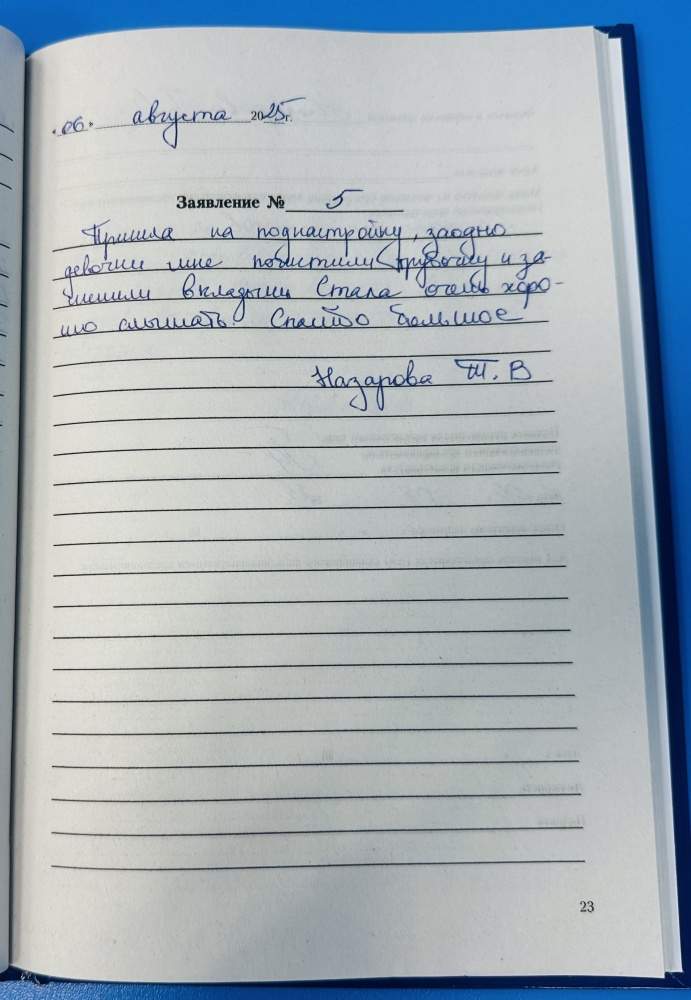 «06» августа 2025г.
Заявление № 5
Пришла на поднастройку, заодно
девочки мне почистили трубочку и за-
менили вкладыш Стала очень хоро-
шо слышать. Спасибо большое
Назарова Т. В
23